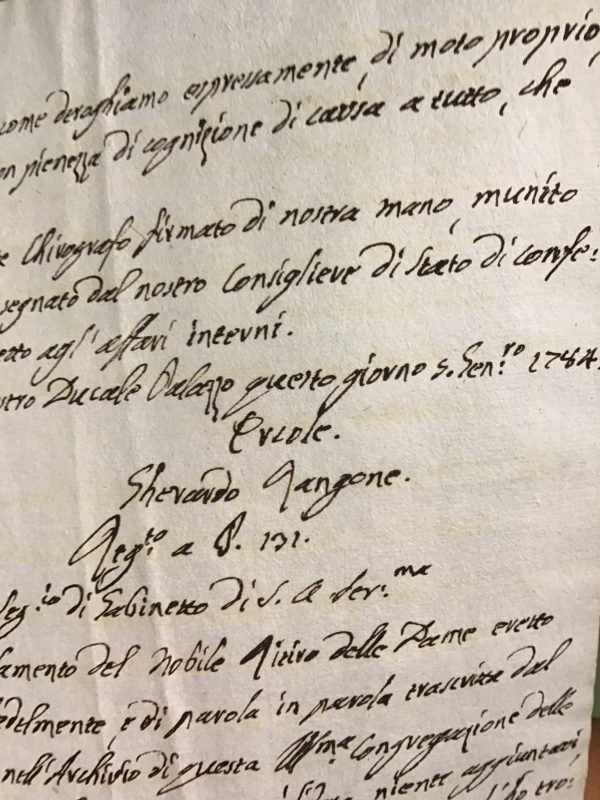 come deroghiamo espressamente, di moto proprio,
on pienezza di cognizione di causa a tutto, che
e Chirografo firmato di nostra mano, munito
segnato dal nostro Consigliere di Stato di confe=
etto agl'affari interni.
stro Ducale Palazzo questo giorno 5. Gen.ro 1784.
Ercole.
Gherardo Rangone.
Reg.to a P. 131.
Seg.io di Gabinetto di S. A. Ser.ma
lamento del Nobile Ritiro delle Dame eretto
edelmente, e di parola in parola trascritta dal
nell'Archivio di questa Ill.ma Congregazione delle
niente aggiuntavi,
tro=